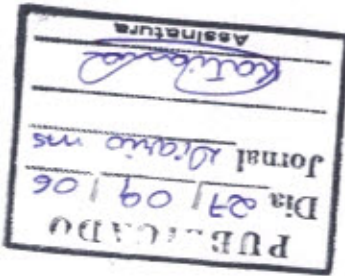 PUBLICADO
Dia 27 / 09 / 06
Jornal Diario ms
Assinatura